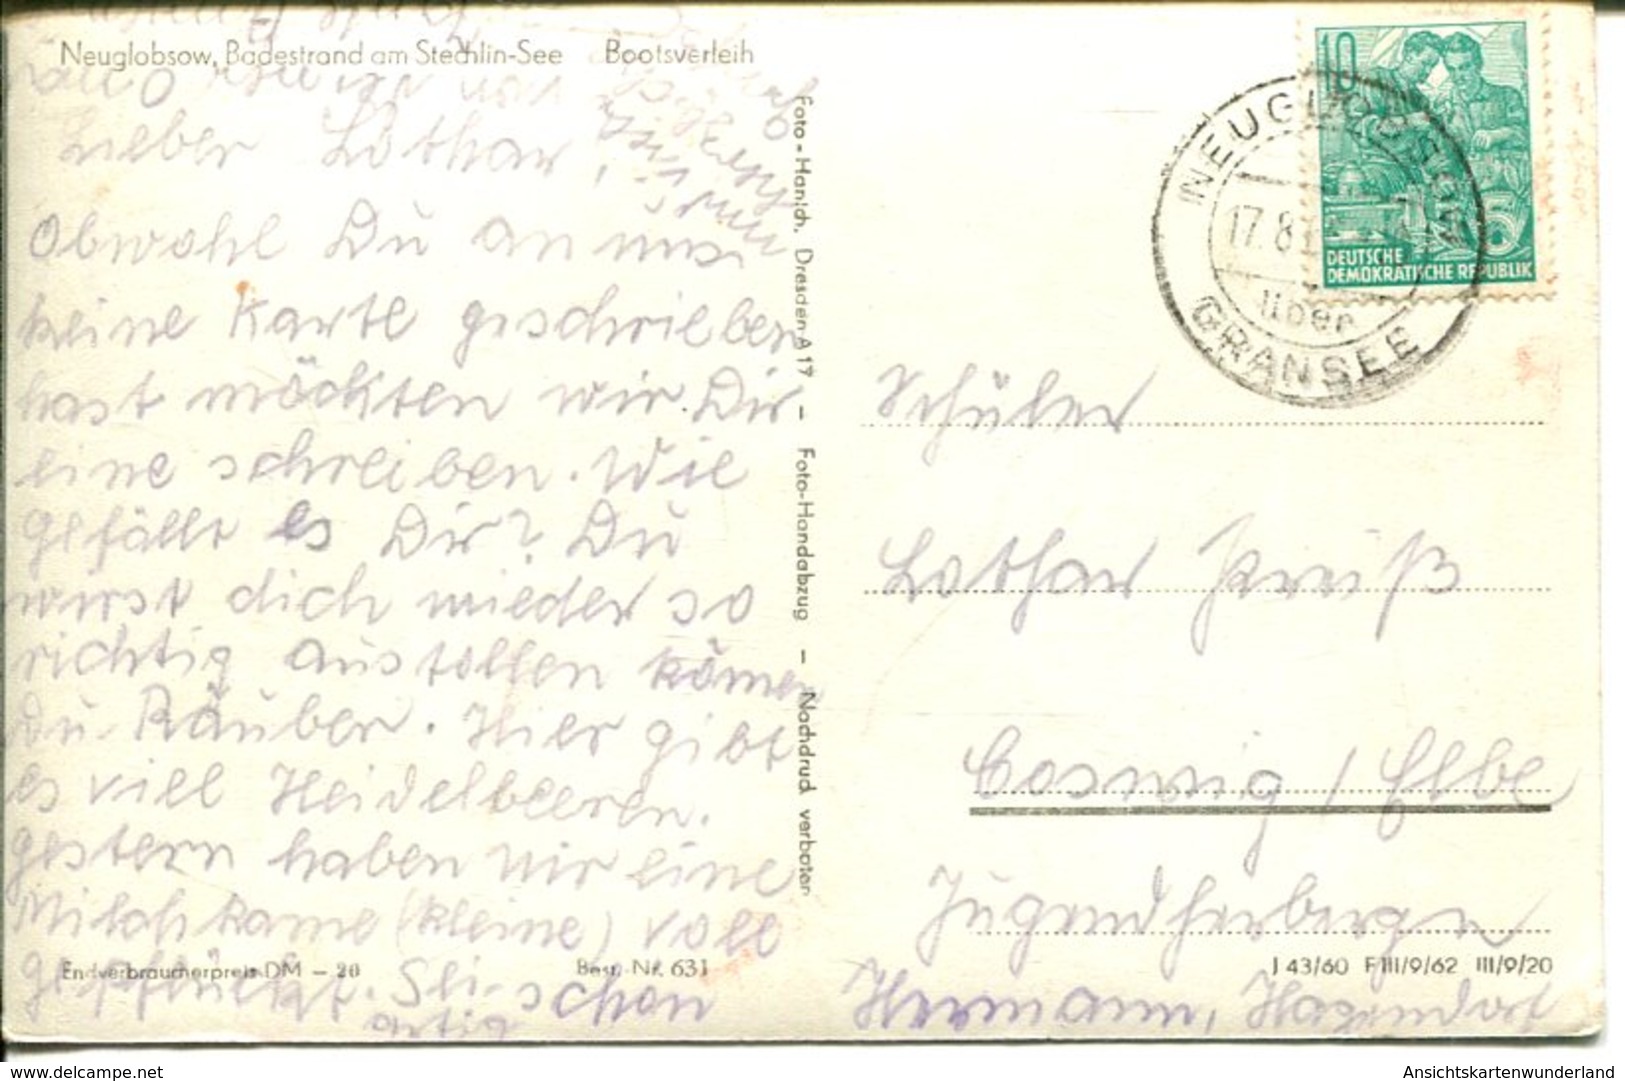 Neuglobsow, Badestrand am Stechlin-See Bootsverleih
Lieber Lothar,
Obwohl Du an uns
keine Karte geschrieben
hast möchten wir Dir
eine schreiben. Wie
gefällt es Dir? Du
wirst dich wieder so
richtig austollen können
Du Räuber. Hier gibt
es viel Heidelbeeren.
gestern haben wir eine
Milchkanne (kleine) voll
gepflückt. Sei schön
artig
Endverbraucherpreis DM – 20 Best. Nr. 631
Foto-Hanich, Dresden A 17 – Foto-Handabzug – Nachdruck verboten
10
DEUTSCHE
DEMOKRATISCHE REPUBLIK
NEUGLOBSOW
17.8.
über
GRANSEE
Schüler
Lothar Preiß
Coswig / Elbe
Jugendherberge
Hermann, Hagendorf
J 43/60 F III/9/62 III/9/20
bayern_erle@yahoo.de
AnsichtskartenWunderland